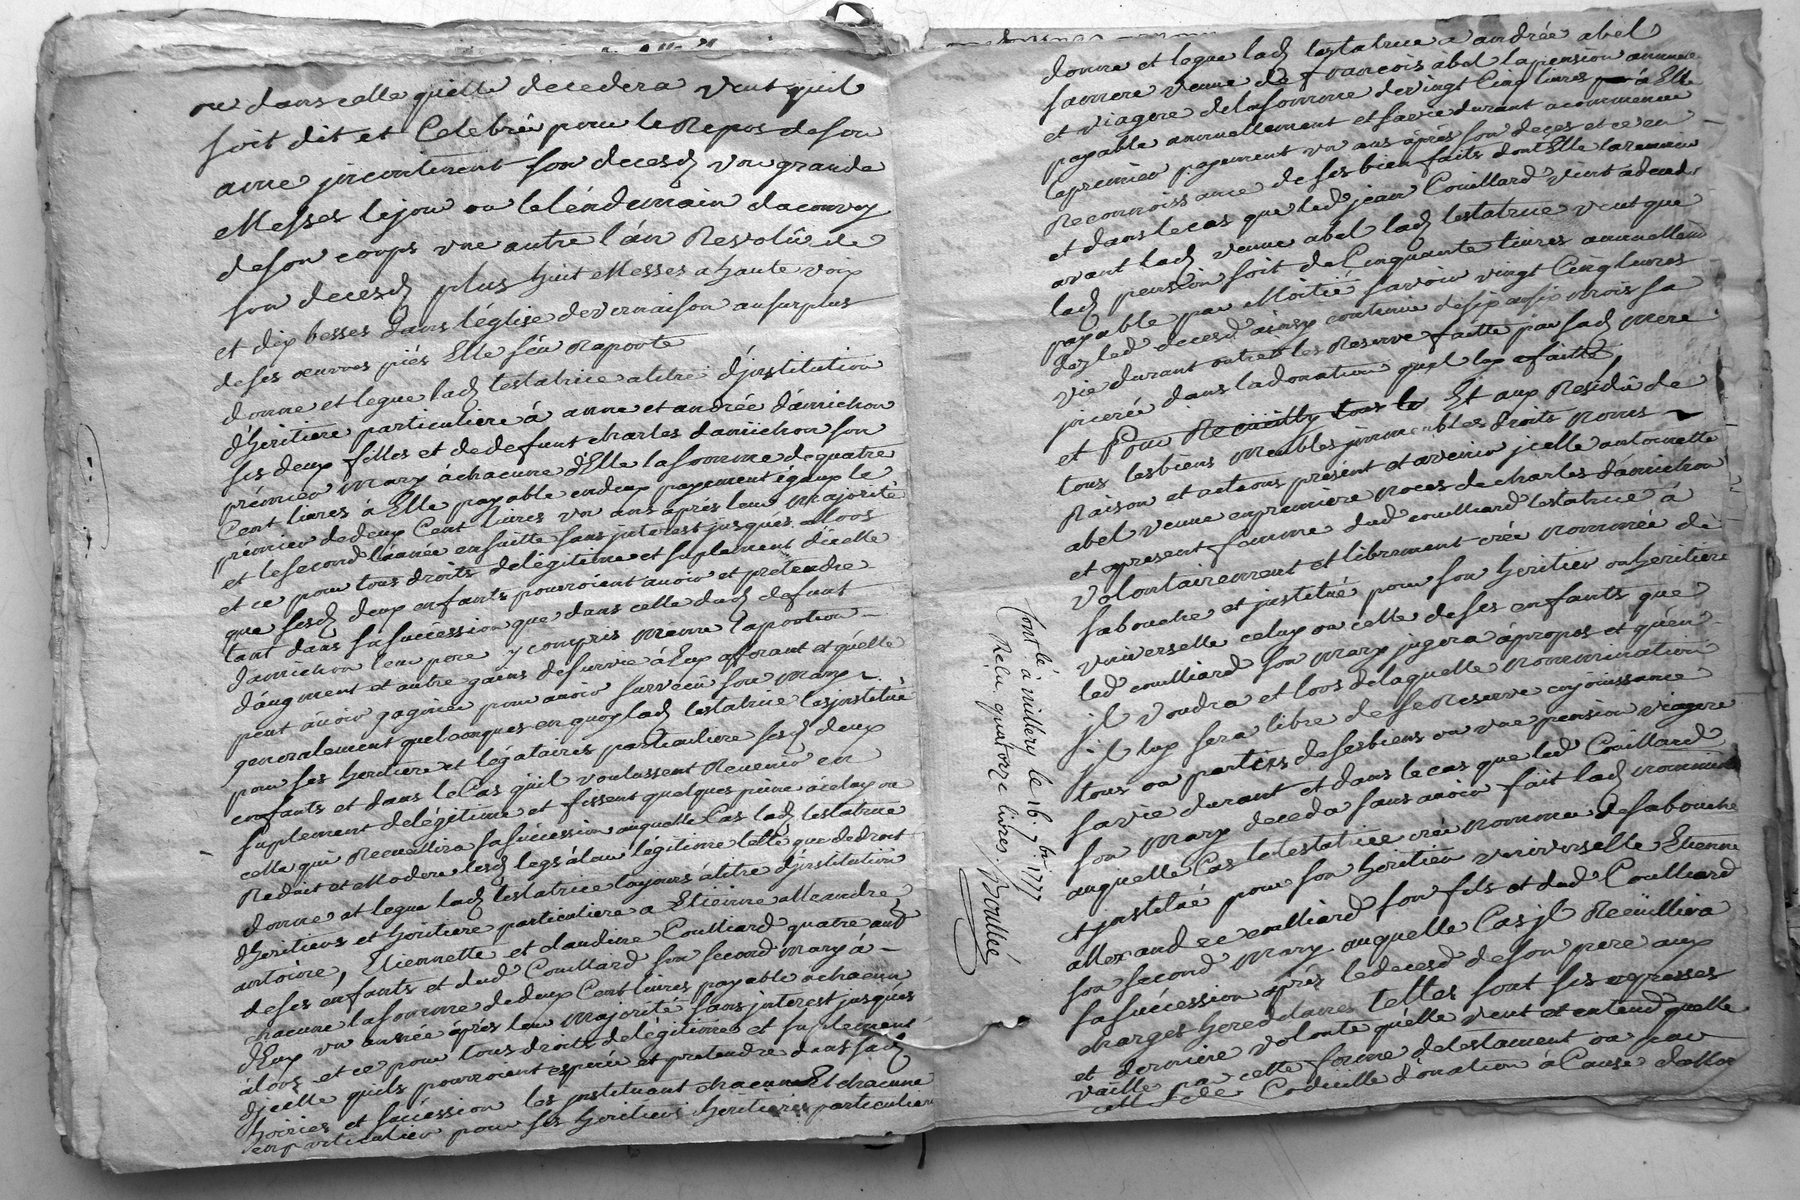 ou dans celle quelle decedera veut quil
soit dit et Celebré pour le Repos de son
ame jncontinent son deces un grande
Messes le jour ou le léndemain du convoy
de son corps vne autre l'án Revolû de
son deces plus huit Messes a haute voix
et dix basses dans l'église de vernaison au surplus
de ses œuvres piés Elle s'en Raporte
donne et legue lad. testatrice a titre d'jnstitution
d'héritiere particuliere á anne et andrée damichon
ses deux filles et de defunt charles damichon son
prémier Mary á chacune d'Elle la somme de quatre
Cent livres á Elle payable en deux payement égaux le
premier de deux Cent livres vn ans aprés leur Majorité
et le second l'année ensuitte sans jnterest jusqués alors
et ce pour tous droits de légitime et suplement d'icelle
que sesd. deux enfants pourroient avoir et prétendre
tant dans sa succession que dans celle dud. defunt
damichon leur pere y compris Meme la portion
d'áugment et autre gains de survie á Eux afferant et qu'elle
peut avoir gagnée pour avoir survecû son Mary
generalement quelconques en quoy lad. testatrice les jnstitué
pour ses heritiere et légataires particuliere sesd. deux
enfants et dans le Cas qu'il voulussent Revenir en
suplement de légitime et fissent quelques peine á celuy ou
celle qui Recueillira sa succession auquelle Cas lad. testatrice
Reduit et Modere lesd. legs á leur legitime telle que de droit
donne et legue lad. testatrice toujours á titre d'jnstitution
d'héritiers et héritiere particuliere a Etienne alleandre
antoine, Etiennette et claudine Couilliard quatre autre
de ses enfants et dud. Couillard son second Mary á
chacune la somme de deux Cent livres payable a chacun
d'Eux vn année áprés leur Majorité sans jnterest jusqués
álors et ce pour tous droits de légitimes et suplement
d'jcelle quils pourroient esperer et pretendre dans sad.
hoiries et succession les jnstituant chacun Et chacune
en particulier pour ses heritiers heritieres particulieres
donne et legue lad. testatrice a andrée abel
sa mere veuve de francois abel la pension annuelle
et viagere de la somme de vingt Cinq livres á Elle
payable annuellement et sa vie durant a commencer
le premier payement vn ans áprés son deces et ce en
Reconnoissance de ses bien faits dont Elle la remercie
et dans le cas que led. jean Couillard vint a deceder
avant lad. veuve abel lad. testatrice veut que
lad. pension soit de Cinquante livres annuellement
payable par Moitié savoir vingt Cinq livres
dez led. deces et ainsy continuer de six en six Mois sa
vie durant outre les Reserve faitte par sad. Mere
jnserée dans la donation qu'el luy a faitte,
et Pour Recüeilly tous le Et aux Residû de
tous les biens Meubles jmmeubles droits Noms
Raison et actions présent et avenir jcelle antoinette
abel veuve en premiere noces de charles damichon
et a present femme dud. couilliard testatrice á
volontairement et librement crée nommée de
sa bouche et jnstitué pour son heritier ou heritiere
vniverselle celuy ou celle de ses enfants que
led. couilliard son Mary jugera á propos et qu'en
jl voudra et lors de laquelle nommination
jl luy sera libre de se Reserver en jouissance
tous ou parties de ses biens ou vne pension viagere
sa vie durant et dans le cas que led. Couillard
son Mary deceda sans avoir fait lad. nommination
auquelle Cas la testatrice crée nomme de sa bouche
et jnstitué pour son héritier vniverselle Etienne
allexandre couilliard son fils et dud. Couilliard
son second Mary auquelle Cas jl Recüillira
sa succession aprés le deces de son pere aux
charges hereditaires telles sont ses expresses
et derniere volonté qu'elle veut et entend quelle
vaille par cette forme de testament ou par
celle de Codicille donation á Cause de Mort
Cont.lé á millery le 16. 7bre. 1777
Reçu quatorze livres. Boullée